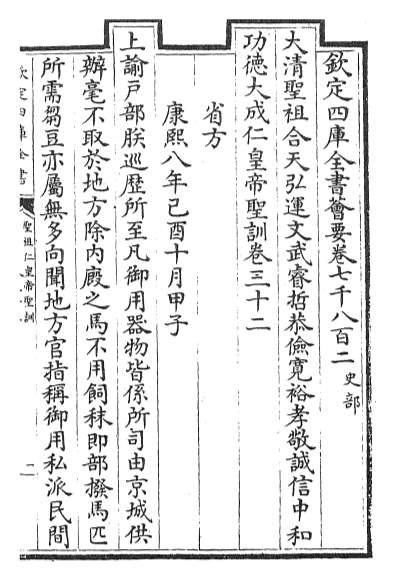 欽定四庫全書薈要卷七千八百二 史部
大清聖祖合天弘運文武睿哲恭儉寛裕孝敬誠信中和
功德大成仁皇帝聖訓卷三十二
省方
康熙八年己酉十月甲子
上諭戸部朕巡歴所至凡御用器物皆係所司由京城供
辦毫不取於地方除内廐之馬不用飼秣即部撥馬匹
所需芻豆亦屬無多向聞地方官指稱御用私派民間
欽定四庫全書
聖祖仁皇帝聖訓
二